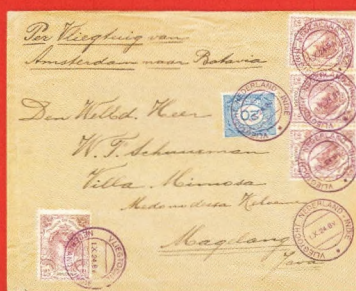 Per Vliegtuig van
Amsterdam naar Batavia
Den Weled. Heer
W. F. Schuurman
Villa Mimosa
Magelang
Java
VLIEGTOCHT NEDERLAND-INDIE
1.X.24.6V